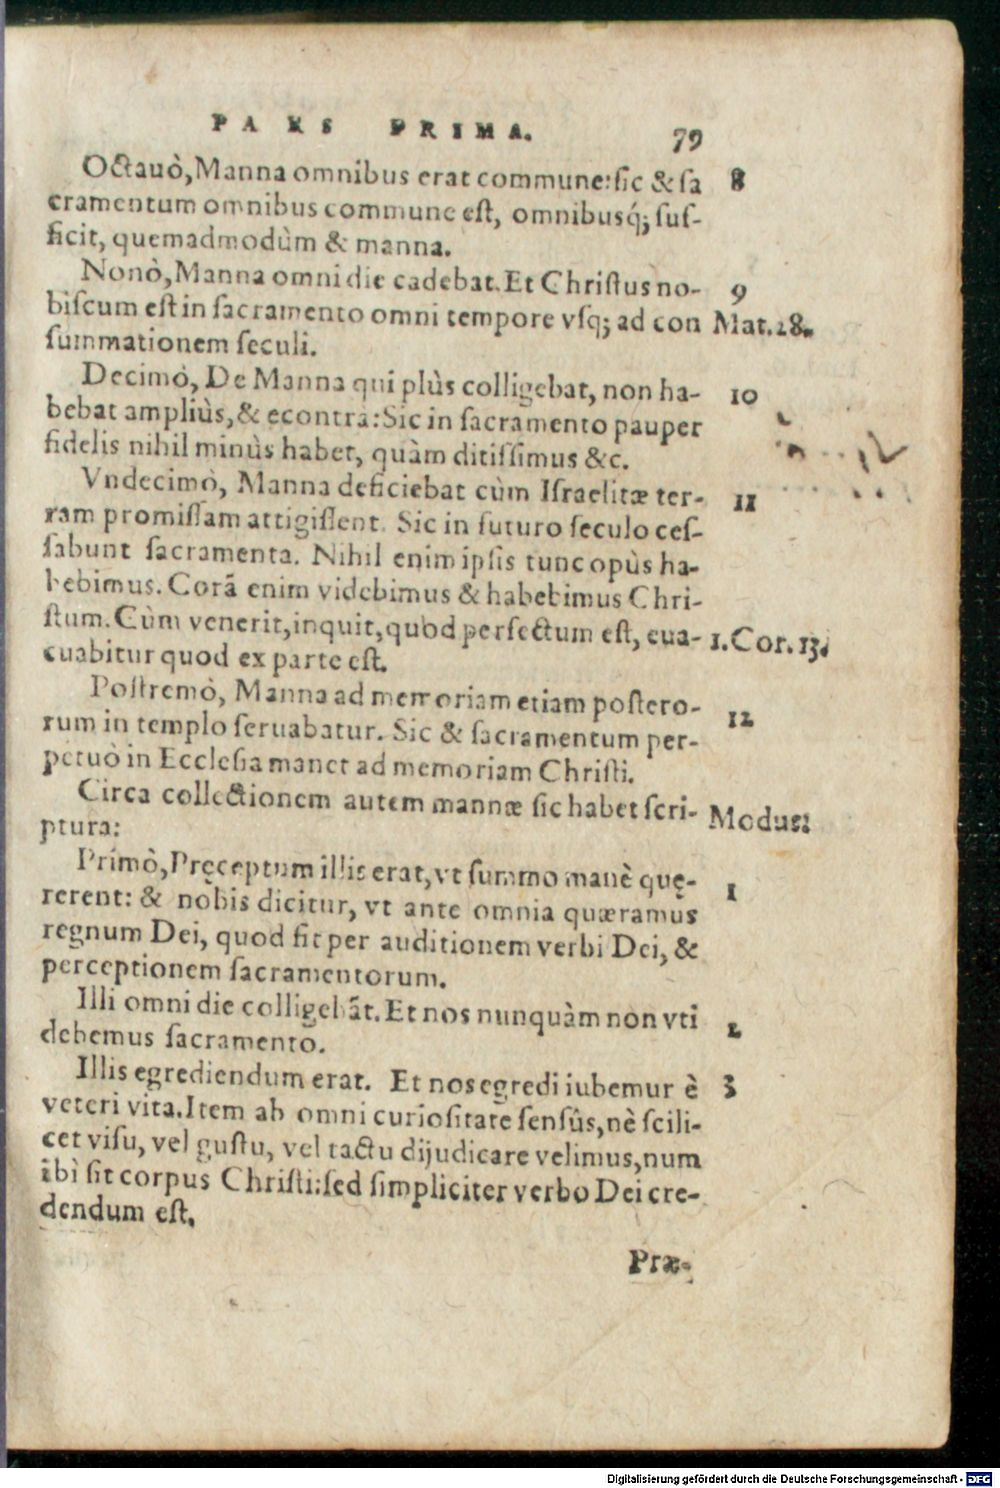 PARS PRIMA. 79
Octauò, Manna omnibus erat commune: sic & sa 8
cramentum omnibus commune est, omnibusq́; suf-
ficit, quemadmodùm & manna.
Nonò, Manna omni die cadebat. Et Christus no- 9
biscum est in sacramento omni tempore vsq; ad con Mat. 28.
summationem seculi.
Decimò, De Manna qui plùs colligebat, non ha- 10
bebat ampliùs, & econtra: Sic in sacramento pauper
fidelis nihil minùs habet, quàm ditissimus &c.
Vndecimò, Manna deficiebat cùm Israelitæ ter- 11
ram promissam attigissent. Sic in futuro seculo ces-
sabunt sacramenta. Nihil enim ipsis tunc opùs ha-
bebimus. Corã enim videbimus & habebimus Chri-
stum. Cùm venerit, inquit, quod perfectum est, eua- 1. Cor. 13.
cuabitur quod ex parte est.
Postremò, Manna ad memoriam etiam postero- 12
rum in templo seruabatur. Sic & sacramentum per-
petuò in Ecclesia manet ad memoriam Christi.
Circa collectionem autem mannæ sic habet scri- Modus:
ptura:
Primò, Pręceptum illis erat, vt summo manè quę- 1
rerent: & nobis dicitur, vt ante omnia quæramus
regnum Dei, quod fit per auditionem verbi Dei, &
perceptionem sacramentorum.
Illi omni die colligebãt. Et nos nunquàm non vti 2
debemus sacramento.
Illis egrediendum erat. Et nos egredi iubemur è 3
veteri vita. Item ab omni curiositate sensûs, nè scili-
cet visu, vel gustu, vel tactu dijudicare velimus, num
ibì sit corpus Christi: sed simpliciter verbo Dei cre-
dendum est.
Præ-
Digitalisierung gefördert durch die Deutsche Forschungsgemeinschaft - DFG